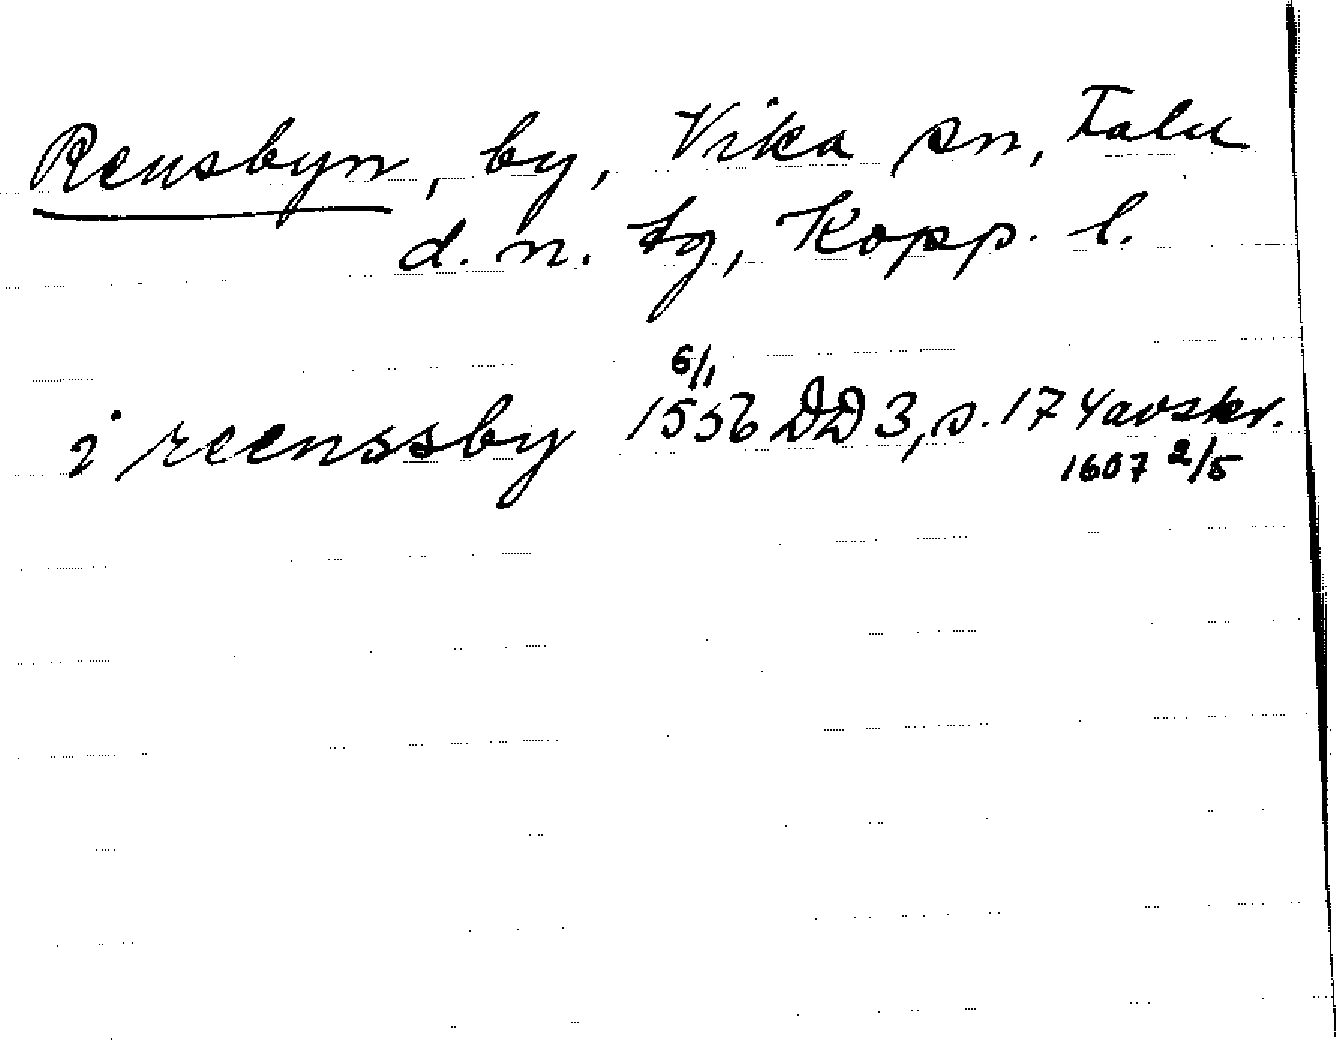 Rensbyn, by, Vika sn, Falu
d. n. tg, Kopp. l.
6/1
i reenssby 1556 DD 3, s. 174 avskr.
1607 2/5